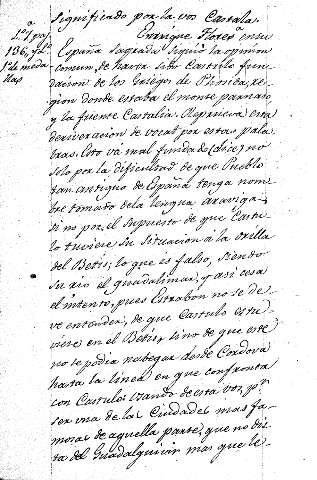 significado por la voz Castala.
Enrrique Florez en su
España Sagrada siguió la opinion
comun, de haver sido Castulo fun
dacion de los Griegos de Phocida, re
gion donde estaba el monte parnaso
y la fuente Castalia. Reprueva esta
derivacion de vocat por estas pala
bras. Esto vá mal fundado (dice) no
solo por la dificultad de que Pueblo
tan antiguo de España tenga nom
bre tomado de la lengua araviga
sino por el supuesto de que Castu
lo tuviese su situacion á la orilla
del Betis; lo que es falso, siendo
su rio el guadalimar; y asi cesa
el intento, pues Estrabon no se de
ve entender, de que Castulo estu
viese en el Betis, sino de que este
no se podia nabegar desde Cordova
hasta la linea en que confronta
con Castulo: usando de esta voz, por
ser una de las Ciudades mas fa
mosas de aquella parte, que no dis
ta del Guadalquivir mas que le